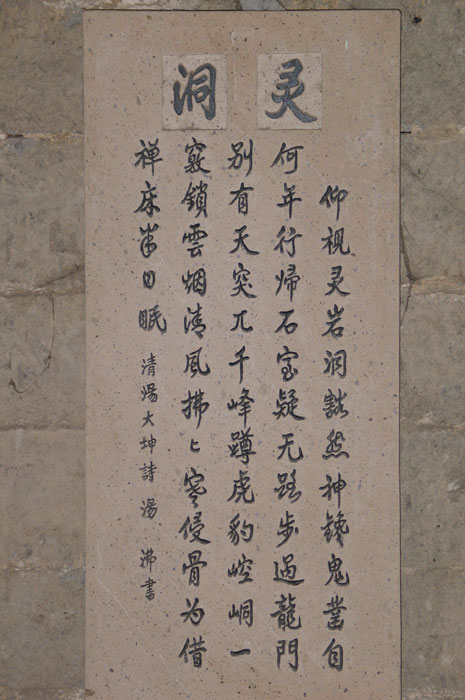 灵洞
仰視灵岩洞豁然神镵鬼凿自
何年行帰石室疑无路步過龍門
别有天突兀千峰蹲虎豹崆峒一
竅鎖雲烟清風拂々寒侵骨为借
禅床半日眠 清湯大坤詩 湯沸書